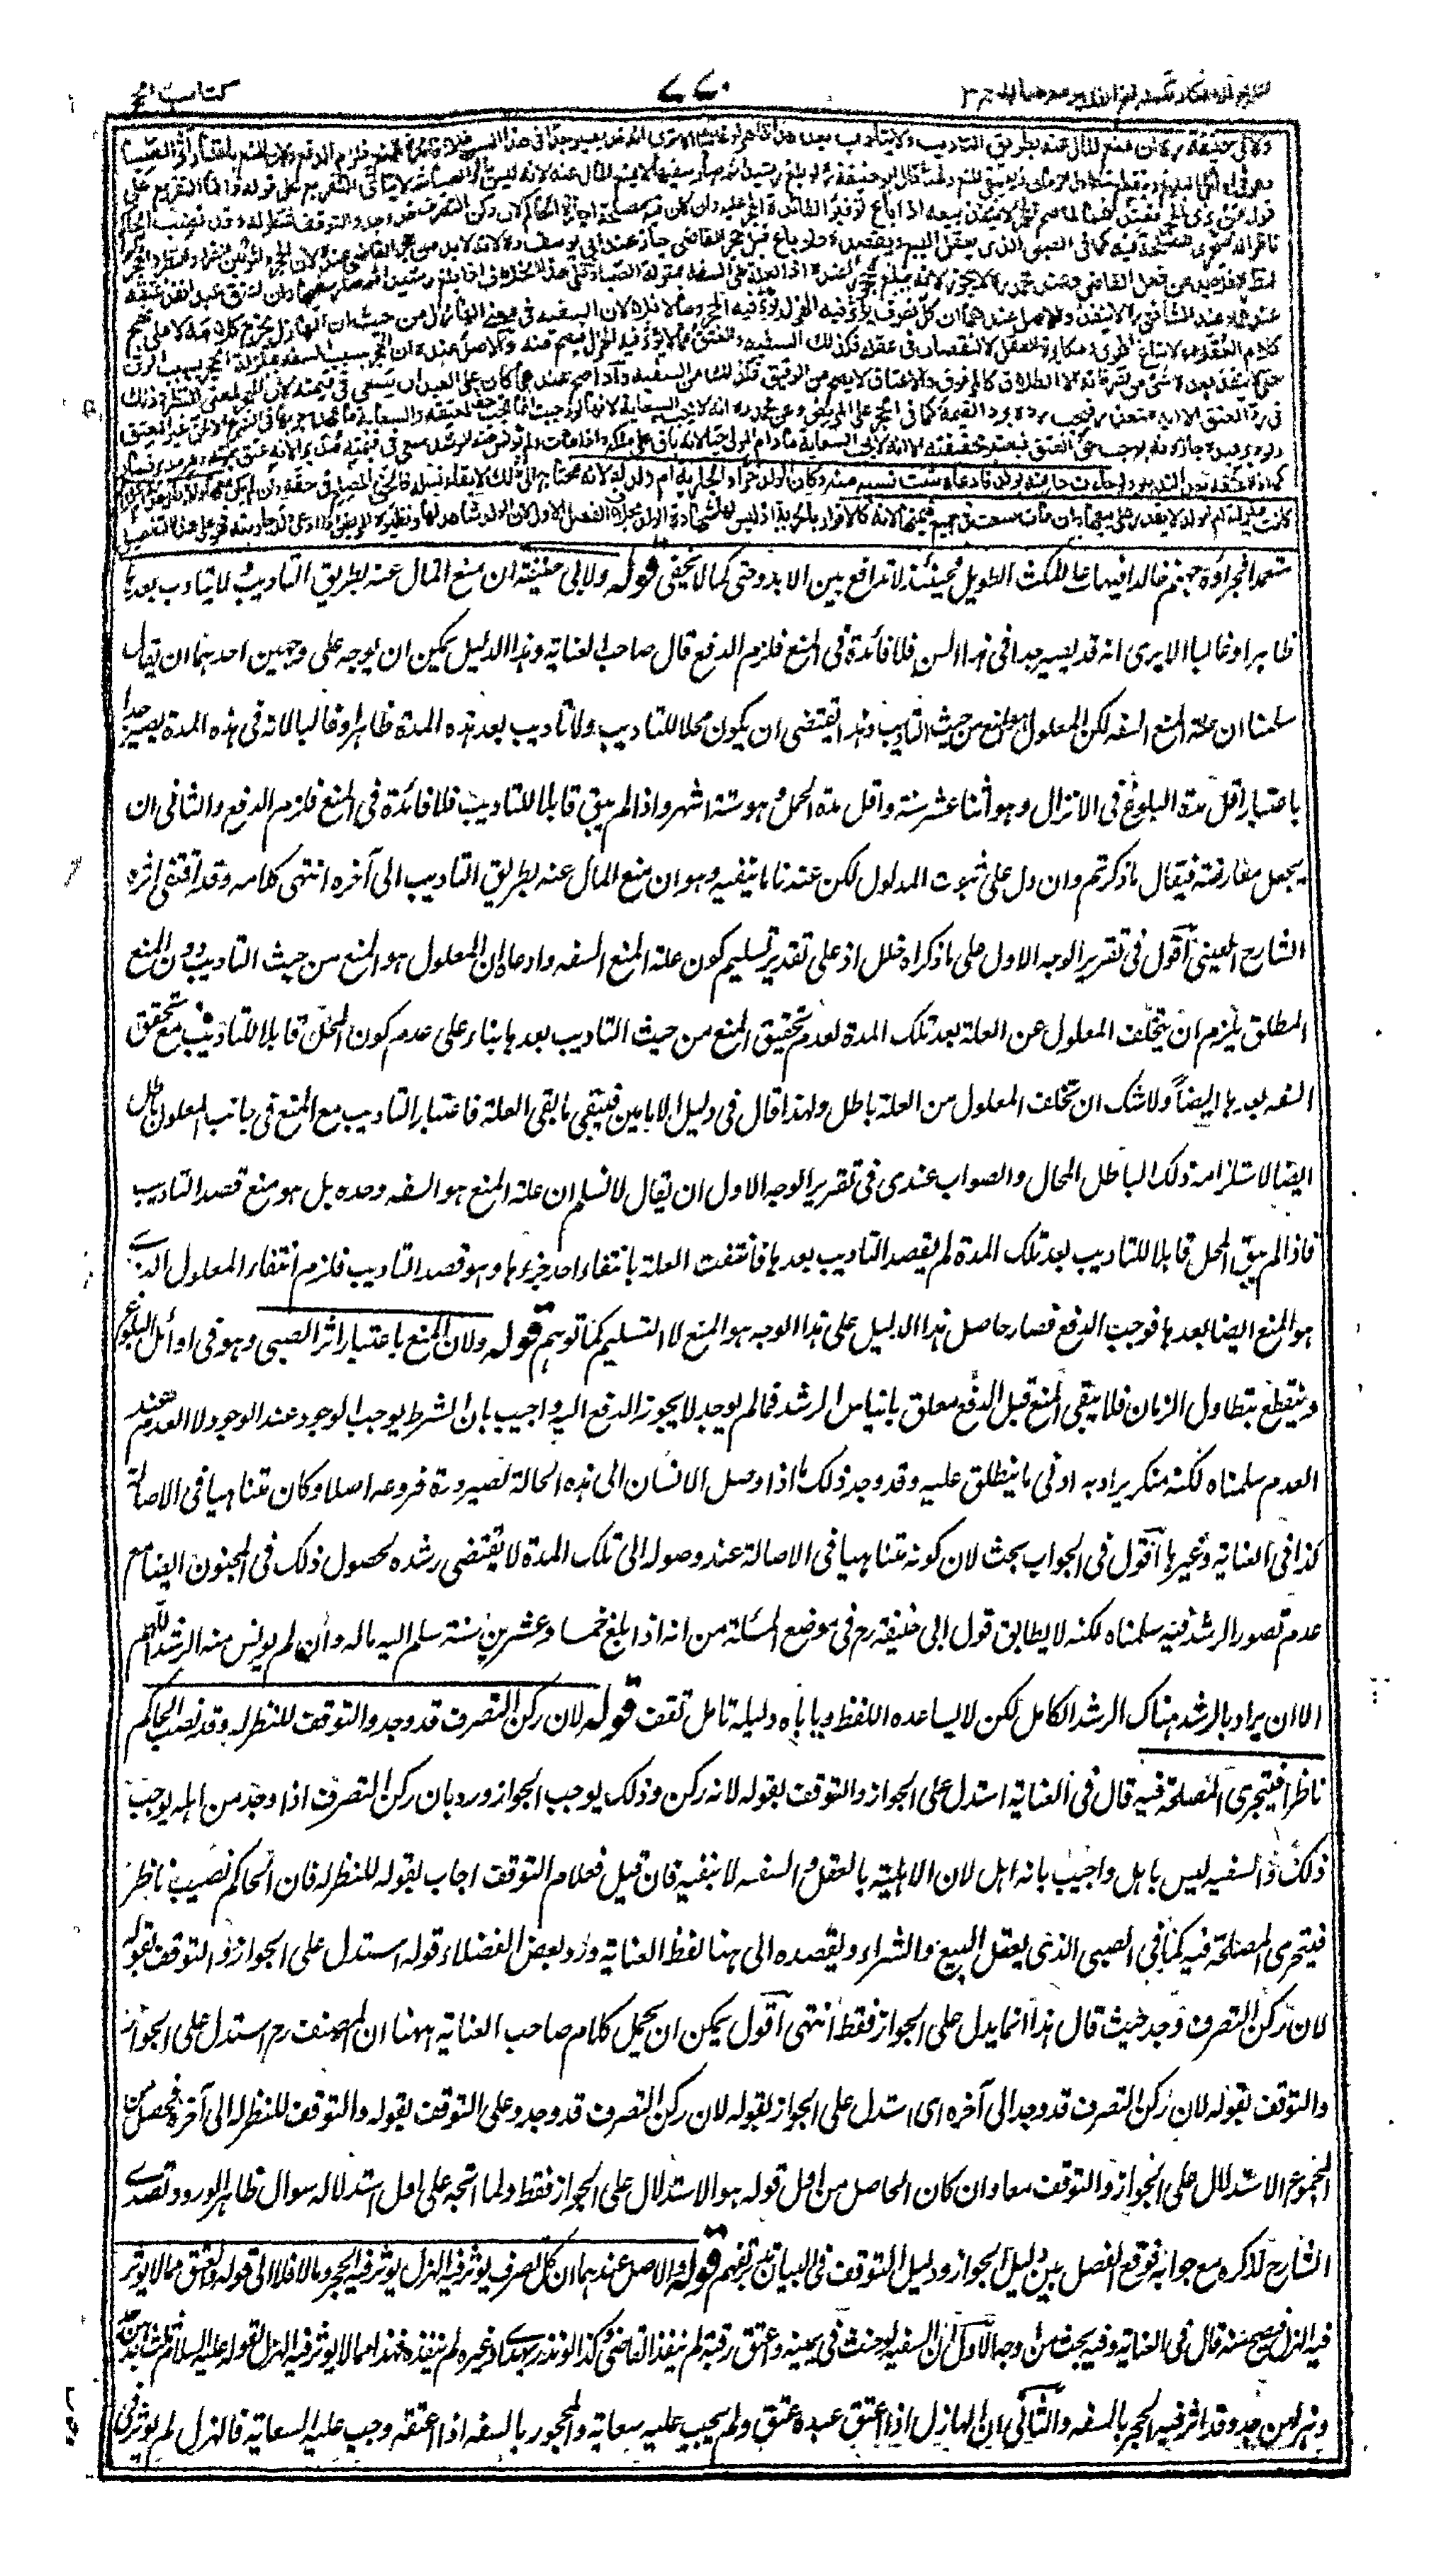 كتاب الحجر
٧٧٠
ولابي حنيفة ان منع المال عنه بطريق التاديب ولا يتادب بعد هذا ظاهرا وغالبا الا يرى انه قد يصير جدا في هذا السن فلا فائدة في المنع فلزم الدفع ولان المنع باعتبار اثر الصبا
وهو في اوائل البلوغ وينقطع بتطاول الزمان فلا يبقى المنع ولهذا قال ابو حنيفة لو بلغ رشيدا ثم صار سفيها لا يمنع المال عنه لانه ليس باثر الصبا ثم لا يتاتى التفريع على قوله وانما التفريع على
قول من يرى الحجر فعندهما لما صح الحجر لا ينفذ بيعه اذا باع توفيرا لفائدة الحجر عليه وان كان فيه مصلحة اجازه الحاكم لان ركن التصرف قد وجد والتوقف للنظر له وقد نصب الحاكم
ناظرا له فيتحرى المصلحة فيه كما في الصبي الذي يعقل البيع ويقصده ولو باع قبل حجر القاضي جاز عند ابي يوسف لانه لا بد من حجر القاضي عنده لان الحجر دائر بين الضرر والنظر والحجر
لنظره فلا بد من فعل القاضي وعند محمد لا يجوز لانه يبلغ محجورا عنده اذ العلة هي السفه بمنزلة الصبا وعلى هذا الخلاف اذا بلغ رشيدا ثم صار سفيها وان اعتق عبدا نفذ عتقه
عندهما وعند الشافعي لا ينفذ والاصل عندهما ان كل تصرف يؤثر فيه الهزل يؤثر فيه الحجر وما لا فلا لان السفيه في معنى الهازل من حيث ان الهازل يخرج كلامه لا على نهج
كلام العقلاء لاتباع الهوى ومكابرة العقل لا لنقصان في عقله فكذلك السفيه والعتق مما لا يؤثر فيه الهزل فيصح منه والاصل عنده ان الحجر بسبب السفه بمنزلة الحجر بسبب الرق
حتى لا ينفذ بعده شيء من تصرفاته الا الطلاق كالمرقوق والاعتاق لا يصح من الرقيق فكذلك من السفيه واذا صح عندهما كان على العبد ان يسعى في قيمته لان الحجر لمعنى النظر وذلك
في رد العتق الا انه متعذر فيجب رده برد القيمة كما في الحجر على المريض وعن محمد انه لا يجب السعاية لانها لو وجبت انما تجب حقا لمعتقه والسعاية ما عهد وجوبها في الشرع الا لحق غير المعتق
ولو دبر عبده جاز لانه يوجب حق العتق فيعتبر بحقيقته الا انه لا تجب السعاية ما دام المولى حيا لانه باق على ملكه واذا مات ولم يونس منه الرشد سعى في قيمته مدبرا لانه عتق بموته وهو مدبر فصار
كما اذا اعتقه بعد التدبير ولو جاءت جاريته بولد فادعاه يثبت نسبه منه وكان الولد حرا والجارية ام ولد له لانه محتاج الى ذلك لابقاء نسله فالحق بالمصلح في حقه وان لم يكن معها ولد وقال هذه ام ولدي
كانت بمنزلة ام الولد لا يقدر على بيعها وان مات سعت في جميع قيمتها لانه كالاقرار بالحرية اذ ليس لها شهادة الولد بخلاف الفصل الاول لان الولد شاهد لها ونظيره المريض اذا ادعى ولد جاريته فهو على هذا التفصيل
متعمدا فجزاؤه جهنم خالدا فيها على المكث الطويل فحينئذ لا تدافع بين الابد وحتى كما لا يخفى قوله ولابي حنيفة ان منع المال عنه بطريق التاديب لا يتادب بعدها
ظاهرا وغالبا الا يرى انه قد يصير جدا في هذا السن فلا فائدة في المنع فلزم الدفع قال صاحب العناية وهذا الدليل يمكن ان يوجه على وجهين احدهما ان يقال
سلمنا ان علة المنع السفه لكن المعلول هو المنع من حيث التاديب وهذا يقتضي ان يكون محلا للتاديب ولا تاديب بعد هذه المدة ظاهرا وغالبا لانه في هذه المدة يصير جدا
باعتبار اقل مدة البلوغ في الانزال وهو اثنا عشر سنة واقل مدة الحمل وهو ستة اشهر واذا لم يبق قابلا للتاديب فلا فائدة في المنع فلزم الدفع والثاني ان
يجعل معارضة فيقال ما ذكرتم وان دل على ثبوت المدلول لكن عندنا ما ينفيه وهو ان منع المال عنه بطريق التاديب الى آخره انتهى كلامه وقد اقتفى اثره
الشارح العيني اقول في تقرير الوجه الاول على ما ذكراه خلل اذ على تقدير تسليم كون علة المنع السفه وادعاء ان المعلول هو المنع من حيث التاديب دون المنع
المطلق يلزم ان يتخلف المعلول عن العلة بعد تلك المدة لعدم تحقيق المنع من حيث التاديب بعدها بناء على عدم كون المحل قابلا للتاديب مع تحقق
السفه بعدها ايضا ولا شك ان تخلف المعلول من العلة باطل ولهذا قال في دليل الامامين فيبقى ما بقي العلة فاعتبار التاديب مع المنع في جانب المعلول باطل
ايضا لاستلزامه ذلك الباطل المحال والصواب عندي في تقرير الوجه الاول ان يقال لا نسلم ان علة المنع هو السفه وحده بل هو مع قصد التاديب
فاذا لم يبق المحل قابلا للتاديب بعد تلك المدة لم يقصد التاديب بعدها فانتفت العلة بانتفاء احد جزءيها وهو قصد التاديب فلزم انتفاء المعلول الذي
هو المنع ايضا بعدها فوجب الدفع فصار حاصل هذا الدليل على هذا الوجه هو المنع لا التسليم كما توهم قوله ولان المنع باعتبار اثر الصبى وهو في اوائل البلوغ
وينقطع بتطاول الزمان فلا يبقى المنع قيل الدفع معلق بايناس الرشد فما لم يوجد لا يجوز الدفع اليه واجيب بان الشرط يوجب الوجود عند الوجود لا العدم عند
العدم سلمناه لكنه منكر يراد به ادنى ما ينطلق عليه وقد وجد ذلك اذا وصل الانسان الى هذه الحالة لصيرورة فروعه اصلا وكان متناهيا في الاصالة
كذا في العناية وغيرها اقول في الجواب بحث لان كونه متناهيا في الاصالة عند وصوله الى تلك المدة لا يقتضي رشده لحصول ذلك في المجنون ايضا مع
عدم تصور الرشد فيه سلمناه لكنه لا يطابق قول ابي حنيفة رح في موضع المسئلة من انه اذا بلغ خمسا وعشرين سنة سلم اليه ماله وان لم يونس منه الرشد اللهم
الا ان يراد بالرشد هناك الرشد الكامل لكن لا يساعده اللفظ وياباه دليله تامل تقف قوله لان ركن التصرف قد وجد والتوقف للنظر له وقد نصب الحاكم
ناظرا فيتحرى المصلحة فيه قال في العناية استدل على الجواز والتوقف بقوله لانه ركن وذلك يوجب الجواز ورد بان ركن التصرف اذا وجد من اهله يوجب
ذلك والسفيه ليس باهل واجيب بانه اهل لان الاهلية بالعقل والسفه لا ينفيه فان قيل فعلام التوقف اجاب بقوله للنظر له فان الحاكم نصيب ناظر
فيتحرى المصلحة فيه كما في الصبي الذي يعقل البيع والشراء ويقصده الى هنا لفظ العناية ورد بعض الفضلاء قوله استدل على الجواز والتوقف بقوله
لان ركن التصرف وجد حيث قال هذا انما يدل على الجواز فقط انتهى اقول يمكن ان يحمل كلام صاحب العناية ههنا ان المصنف رح استدل على الجواز
والتوقف بقوله لان ركن التصرف قد وجد الى آخره اي استدل على الجواز بقوله لان ركن التصرف قد وجد وعلى التوقف بقوله والتوقف للنظر له الى آخره فحصل من
المجموع الاستدلال على الجواز والتوقف معا وان كان الحاصل من اول قوله هو الاستدلال على الجواز فقط ولما اتجه على اول استدلاله سوال ظاهر الورود تصدى
الشارح لذكره مع جوابه فوقع الفصل بين دليل الجواز ودليل التوقف في البيان تدبر تفهم قوله والاصل عندهما ان كل تصرف يوثر فيه الهزل يوثر فيه الحجر وما لا فلا الى قوله والعتق مما لا يوثر
فيه الهزل فيصح منه قال في العناية وفيه بحث من وجه الاول ان السفيه لو حنث في يمينه واعتق رقبة لم ينفذ القاضي وكذا لو نذر بهدي او غيره لم ينفذه فهذا مما لا يوثر فيه الهزل لقوله عليه السلام ثلث جدهن جد
وهزلهن جد وقد اثر فيه الحجر بالسفه والثاني ان الهازل اذا اعتق عبده عتق ولم يجب عليه سعاية والمحجور بالسفه اذا اعتقه وجب عليه السعاية فالهزل لم يوثر في